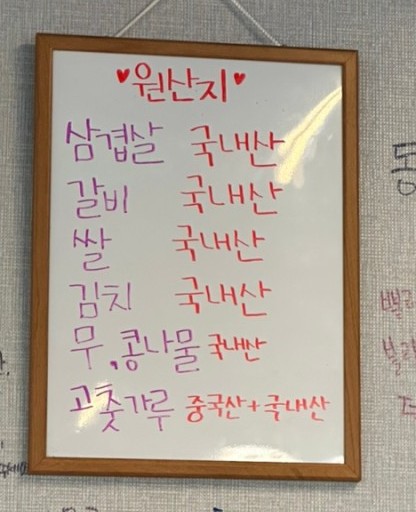 ♥원산지♥
삼겹살 국내산
갈비 국내산
쌀 국내산
김치 국내산
무,콩나물 국내산
고춧가루 중국산+국내산